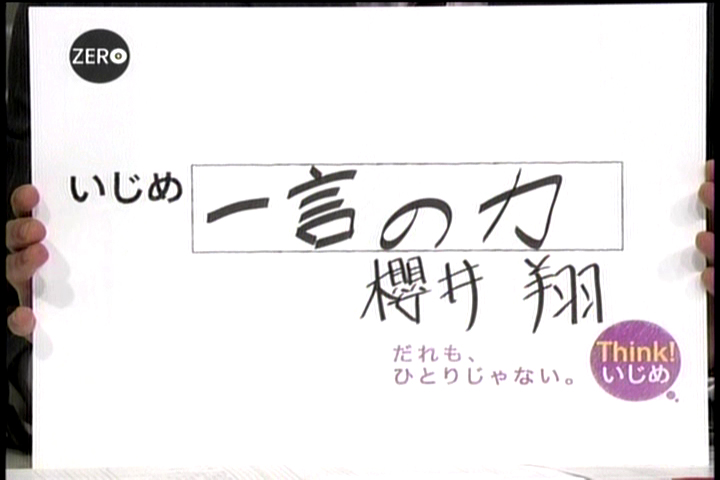 ZERO
いじめ 一言の力
櫻井 翔
だれも、
ひとりじゃない。
Think!
いじめ